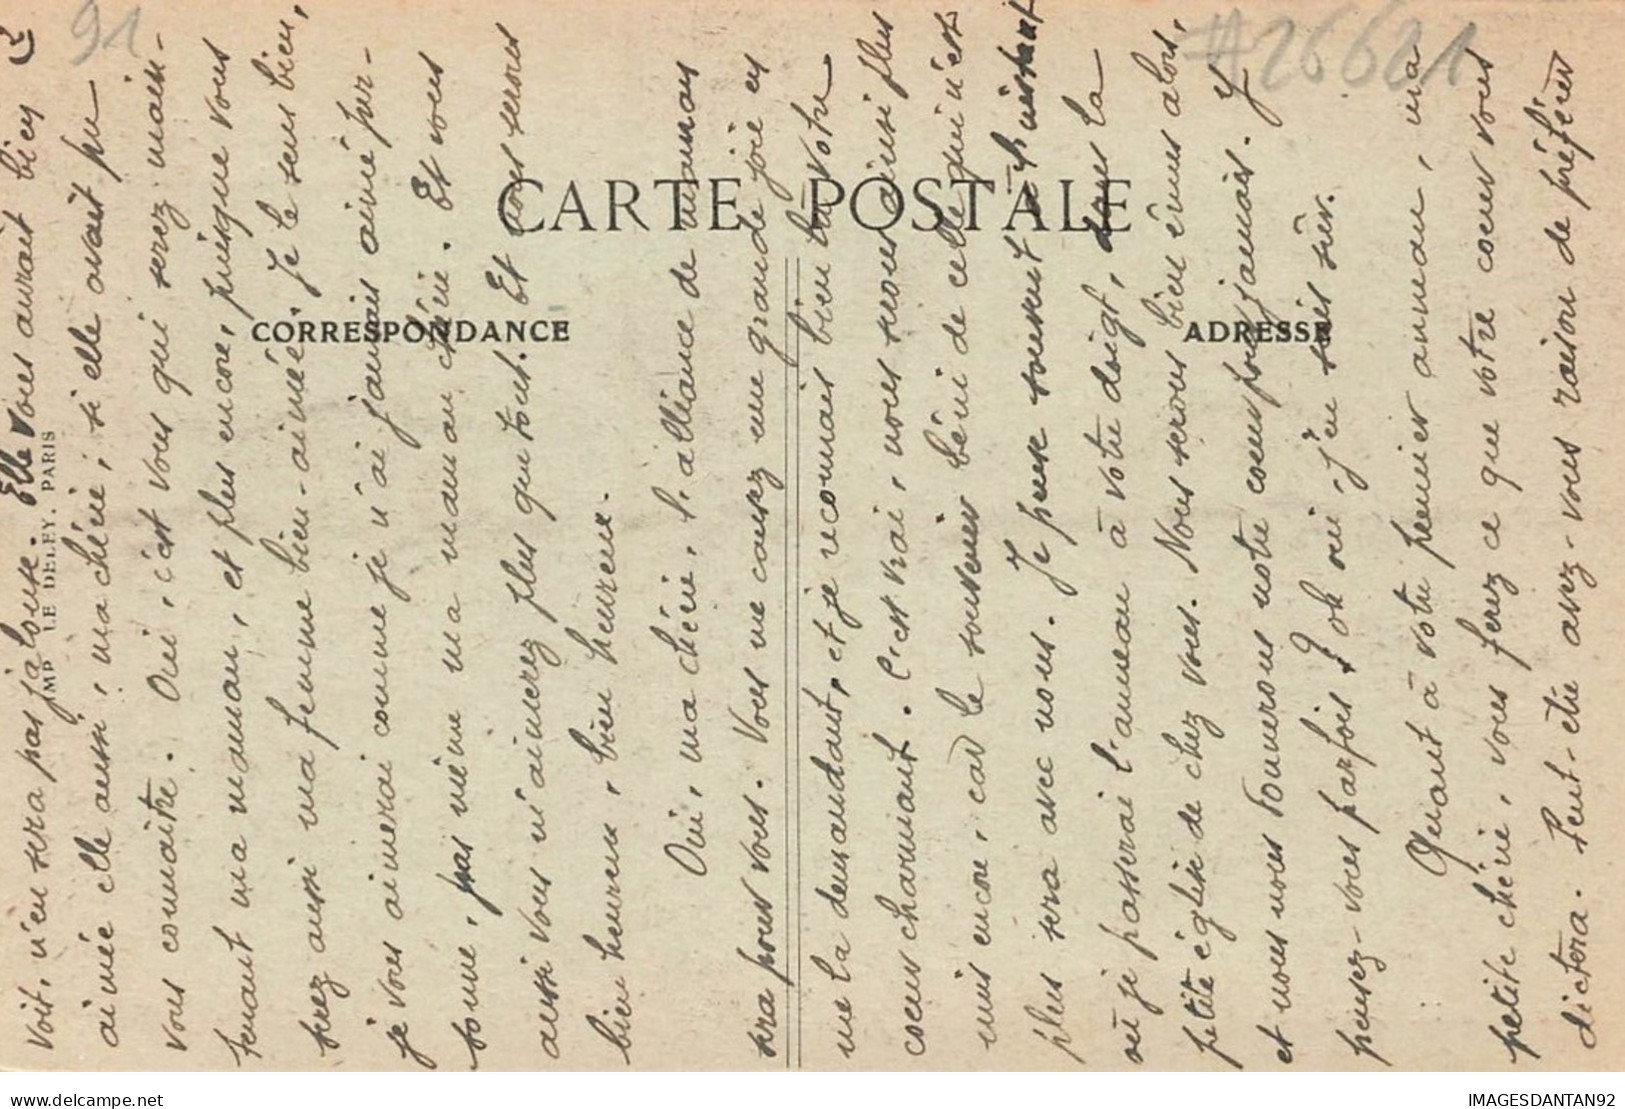 91
#26621
CARTE POSTALE
CORRESPONDANCE
ADRESSE
IMP. LE DELEY, PARIS
voit, n'en sera pas jalouse. Elle vous aurait bien
aimée elle aussi, ma chérie, si elle avait pu
vous connaître. Oui, c'est vous qui serez main-
tenant ma maman, et plus encore, puisque vous
serez aussi ma femme bien-aimée. Je le sens bien,
je vous aimerai comme je n'ai jamais aimé per-
sonne, pas même ma maman chérie. Et vous
aussi vous m'aimerez plus que tout. Et nous serons
bien heureux, bien heureux.
Oui, ma chérie, l'alliance de maman
sera pour vous. Vous me causez une grande joie en
me la demandant, et je reconnais bien là votre
coeur charmant. C'est vrai, nous serons ainsi plus
unis encore, car le souvenir béni de celle qui n'est
plus sera avec nous. Je pense souvent à l'instant
où je passerai l'anneau à votre doigt, dans la
petite église de chez vous. Nous serons bien émus alors,
et nous nous donnerons notre coeur pour jamais. Y
pensez-vous parfois ? oh oui, j'en suis sûr.
Quant à votre premier anneau, ma
petite chérie, vous ferez ce que votre coeur vous
dictera. Peut-être avez-vous raison de préférer
IMAGESDANTAN92
delcampe.net